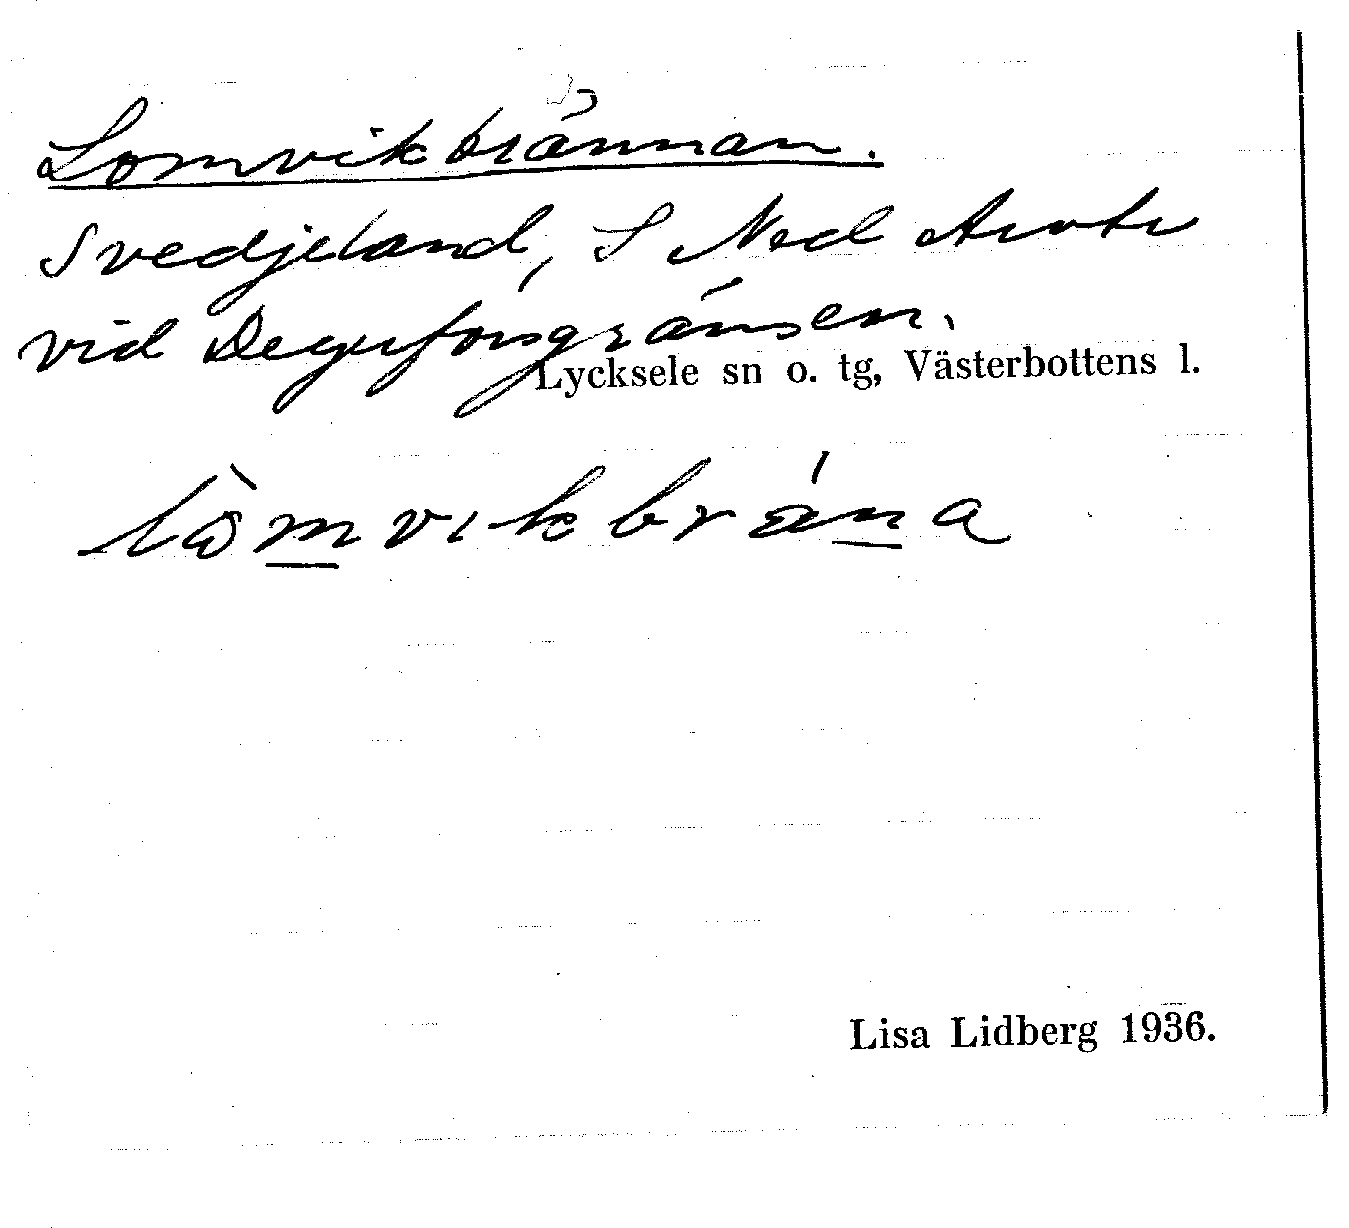 Lomvikbrännan.
Svedjeland, S Ned
vid Degerforsgränsen.
Lycksele sn o. tg, Västerbottens l.
Lisa Lidberg 1936.